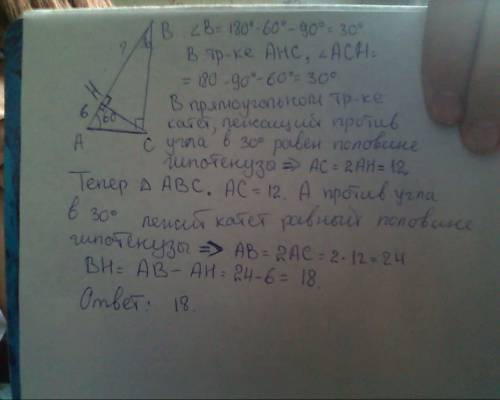 B
∠B = 180°-60°-90° = 30°
?
В тр-ке AHC, ∠ACH =
H
= 180-90°-60° = 30°
6
60°
A
C
В прямоугольном тр-ке
катет, лежащий против
угла в 30° равен половине
гипотенуза ⇒ AC = 2AH = 12.
Тепер Δ ABC. AC = 12. А против угла
в 30° лежит катет равный половине
гипотенузы ⇒ AB = 2AC = 2·12 = 24
BH = AB - AH = 24-6 = 18.
Ответ: 18.